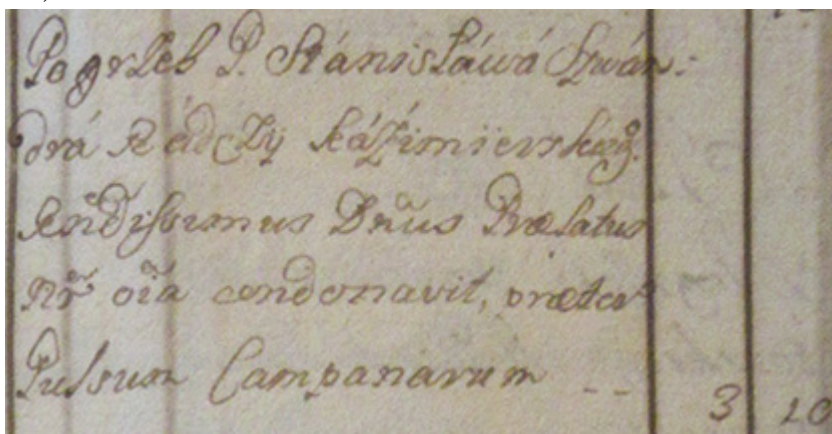 Pogrzeb P. Stánisłáwá Szwán:
drá Rádczÿ Káźimierskieg.
Rñdissimus Dñus Prælatus
nr̃ oĩa condonavit, præter
Pulsum Campanarum -- 3 10